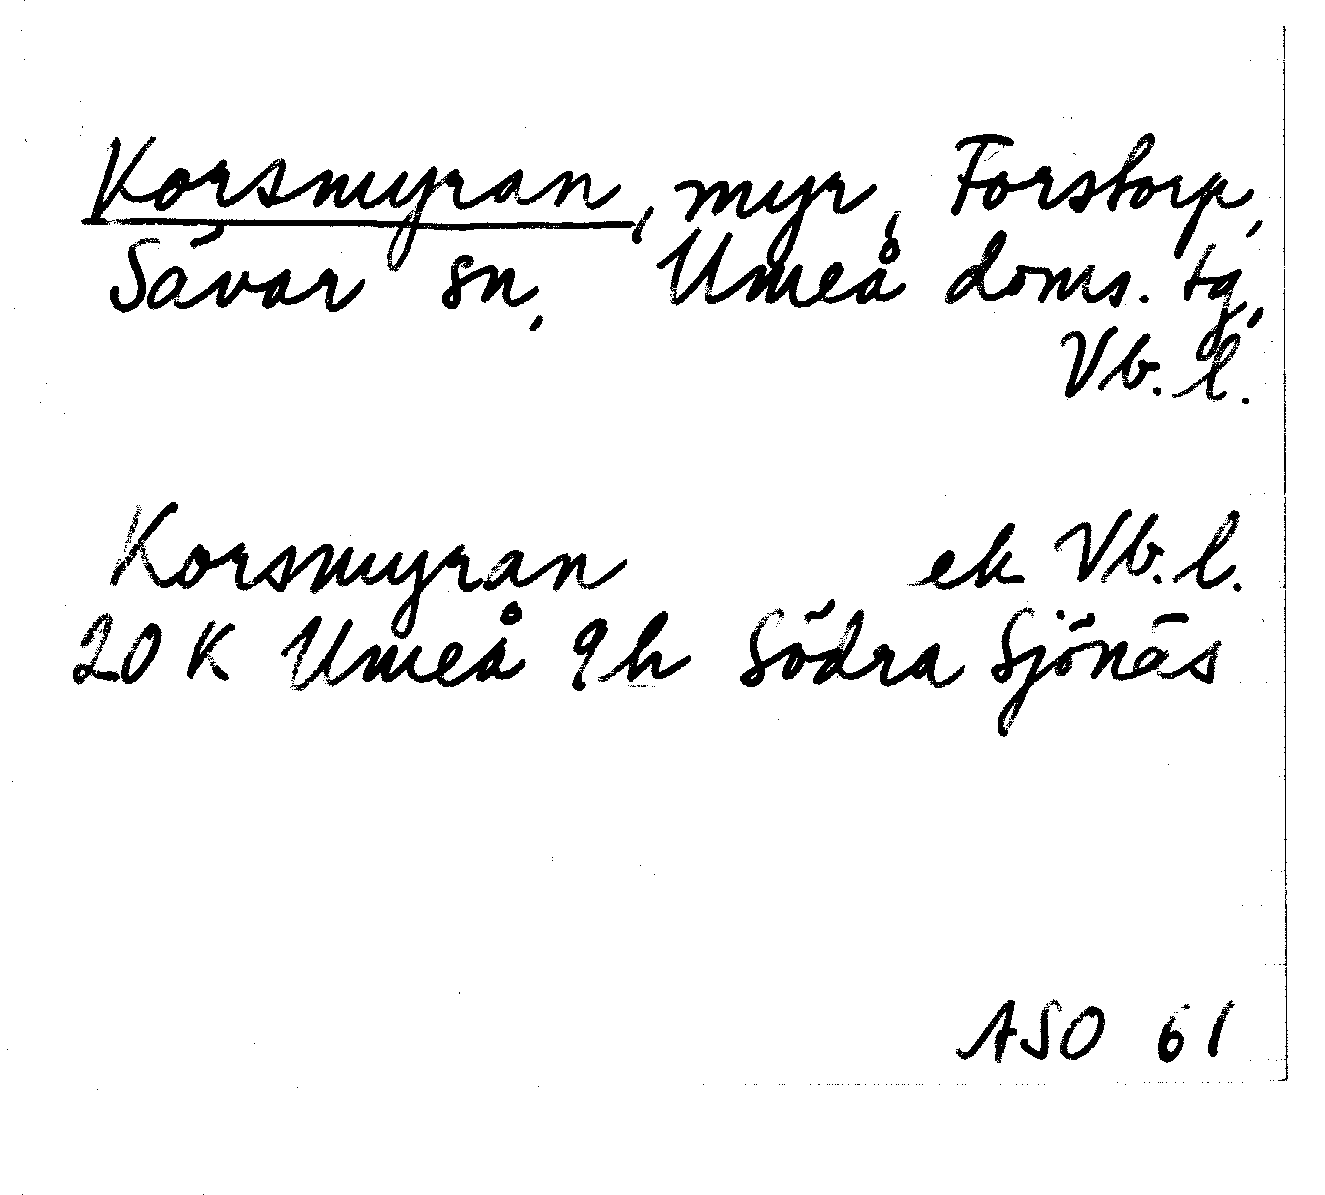 Korsmyran, myr, Forstorp,
Sävar sn, Umeå doms. tg,
Vb. l.
Korsmyran ek Vb. l.
20 K Umeå 9h Södra Sjönäs
ASO 61